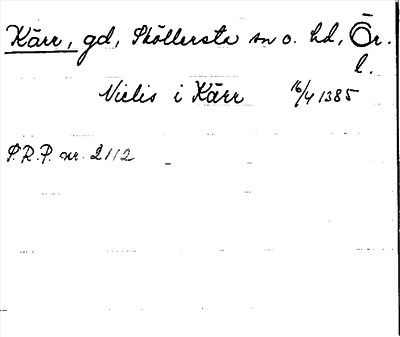 Kärr, gd, Sköllersta sn o. hd, Ör.
l.
Nielis i Kärr 16/4 1385
S.R.P. nr. 2112